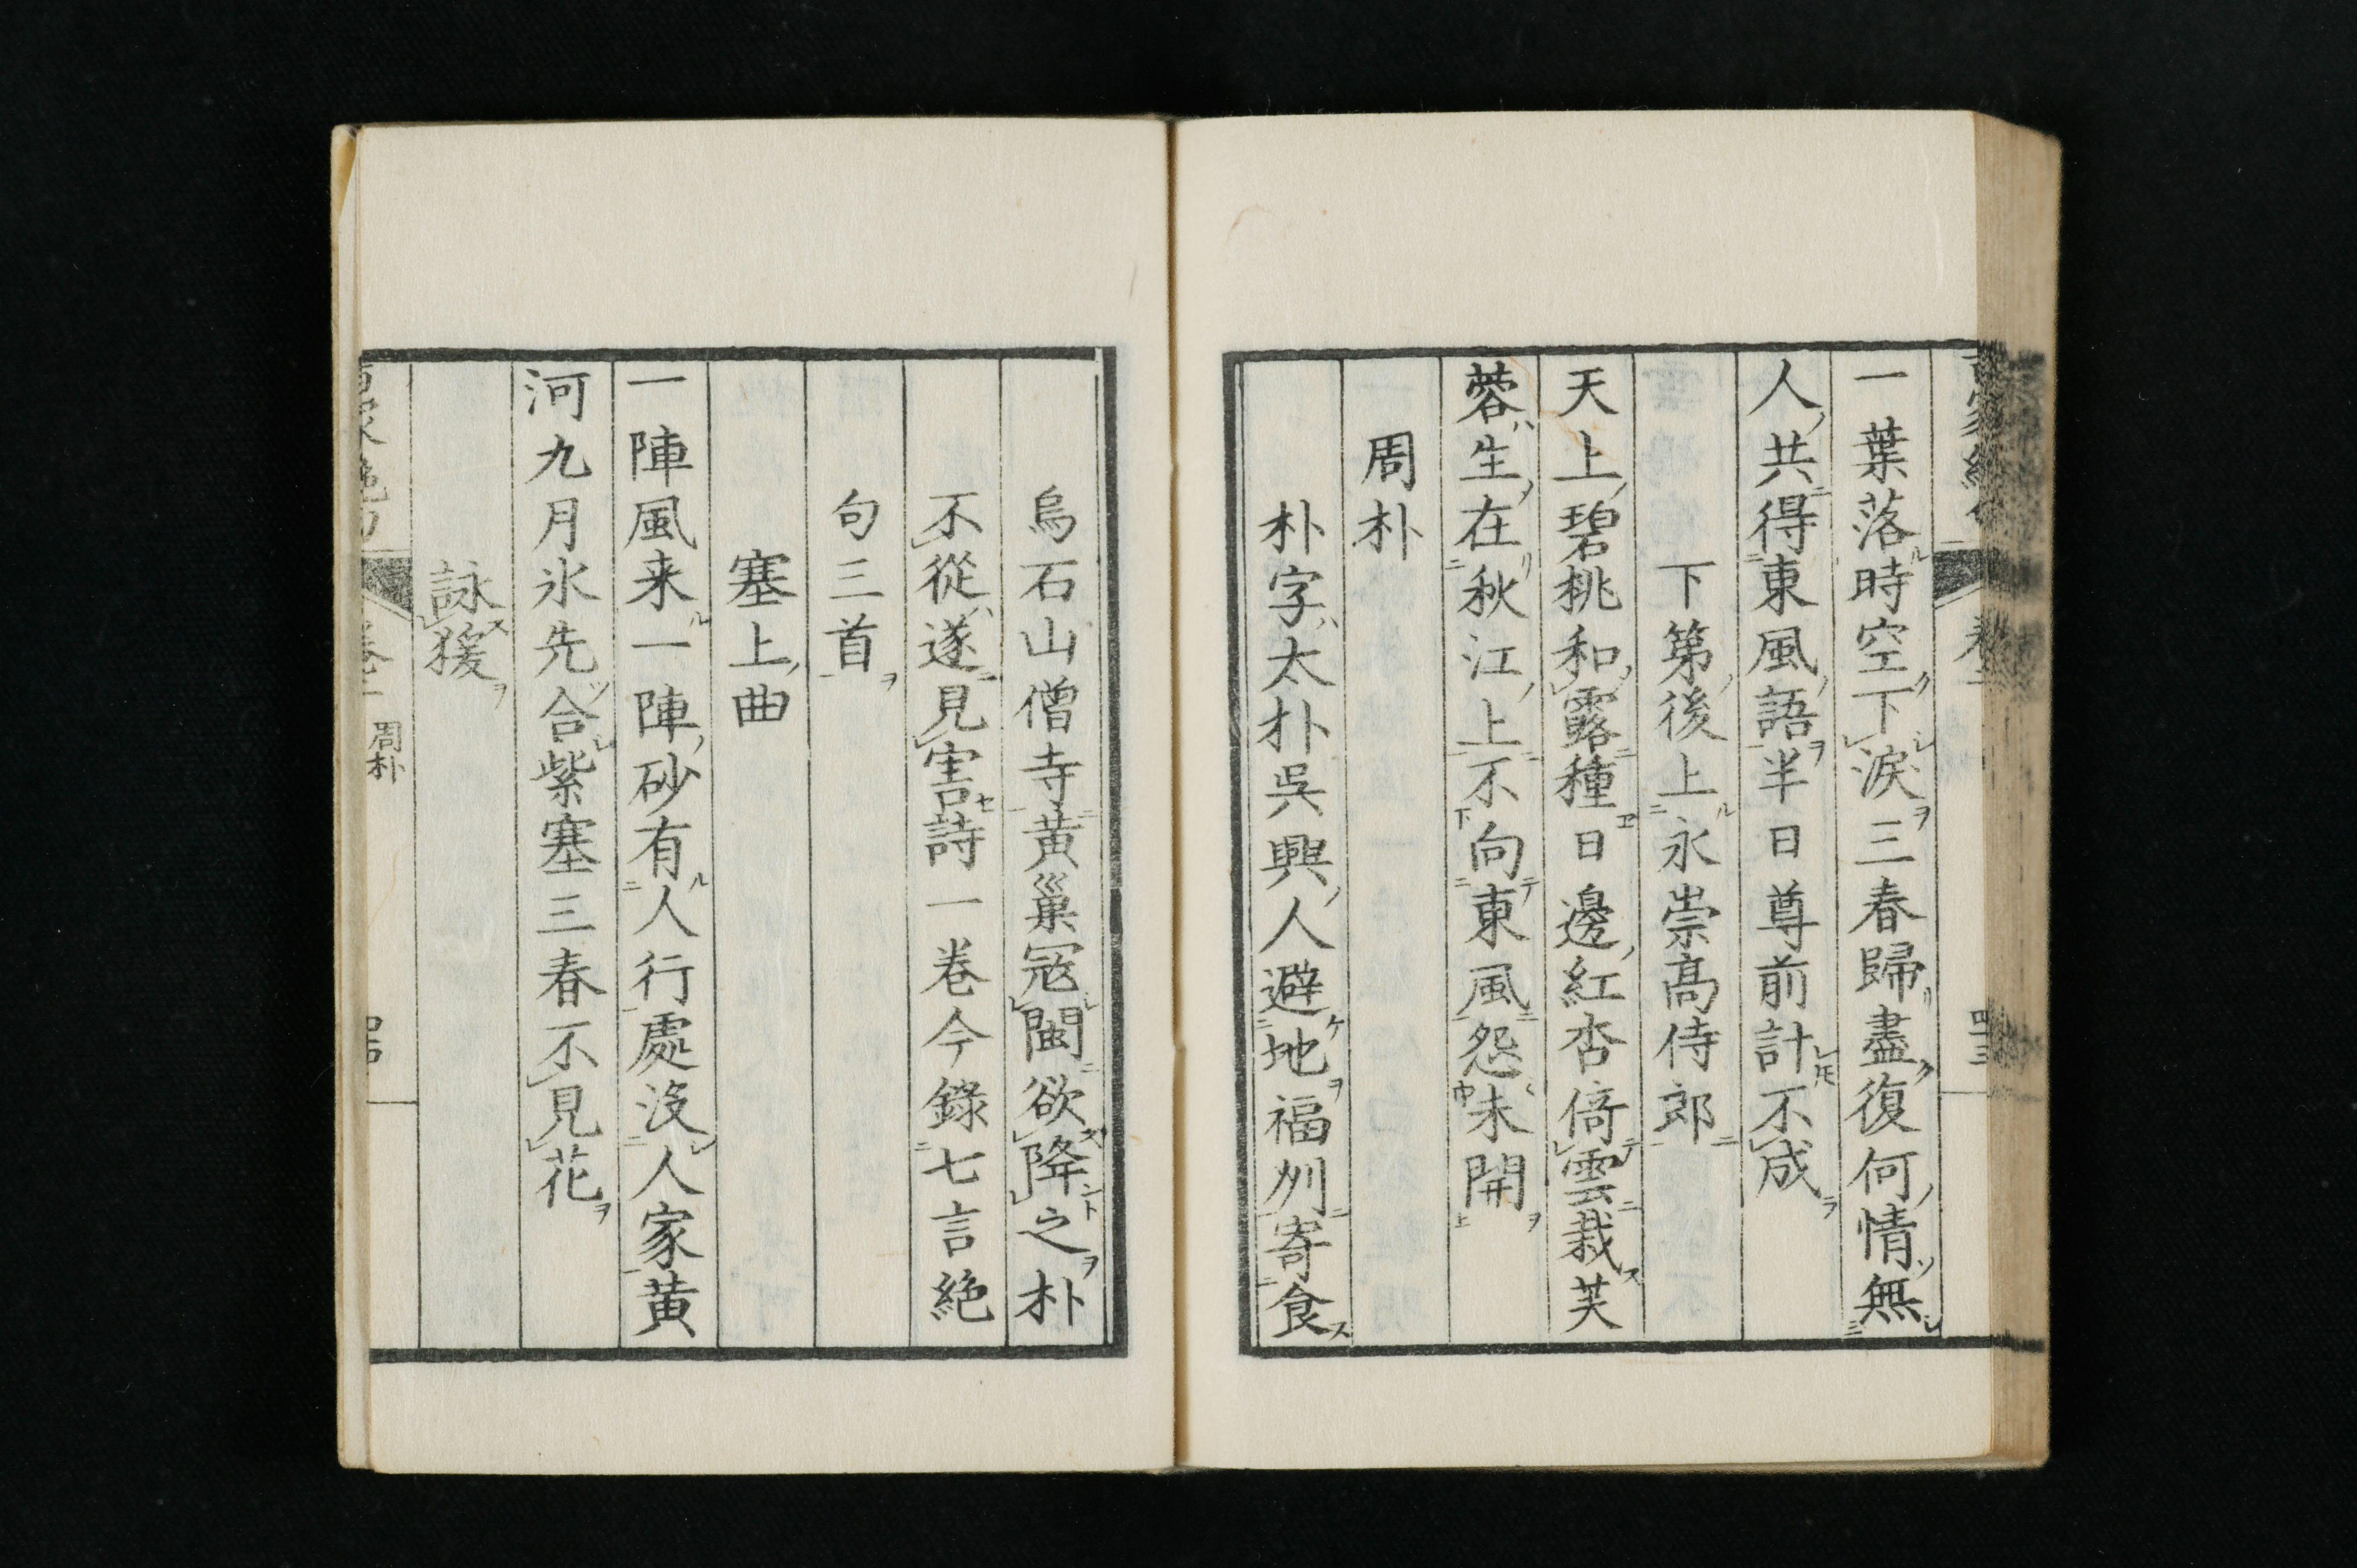 一葉落時空下淚三春歸盡復何情無
人共得東風語半日尊前計不成
下第後上永崇高侍郎
天上碧桃和露種日邊紅杏倚雲栽芙
蓉生在秋江上不向東風怨未開
周朴
朴字太朴吳興人避地福州寄食
烏石山僧寺黃巢寇閩欲降之朴
不從遂見害詩一卷今錄七言絕
句三首
塞上曲
一陣風来一陣砂有人行處沒人家黃
河九月氷先合紫塞三春不見花
詠猨
周朴